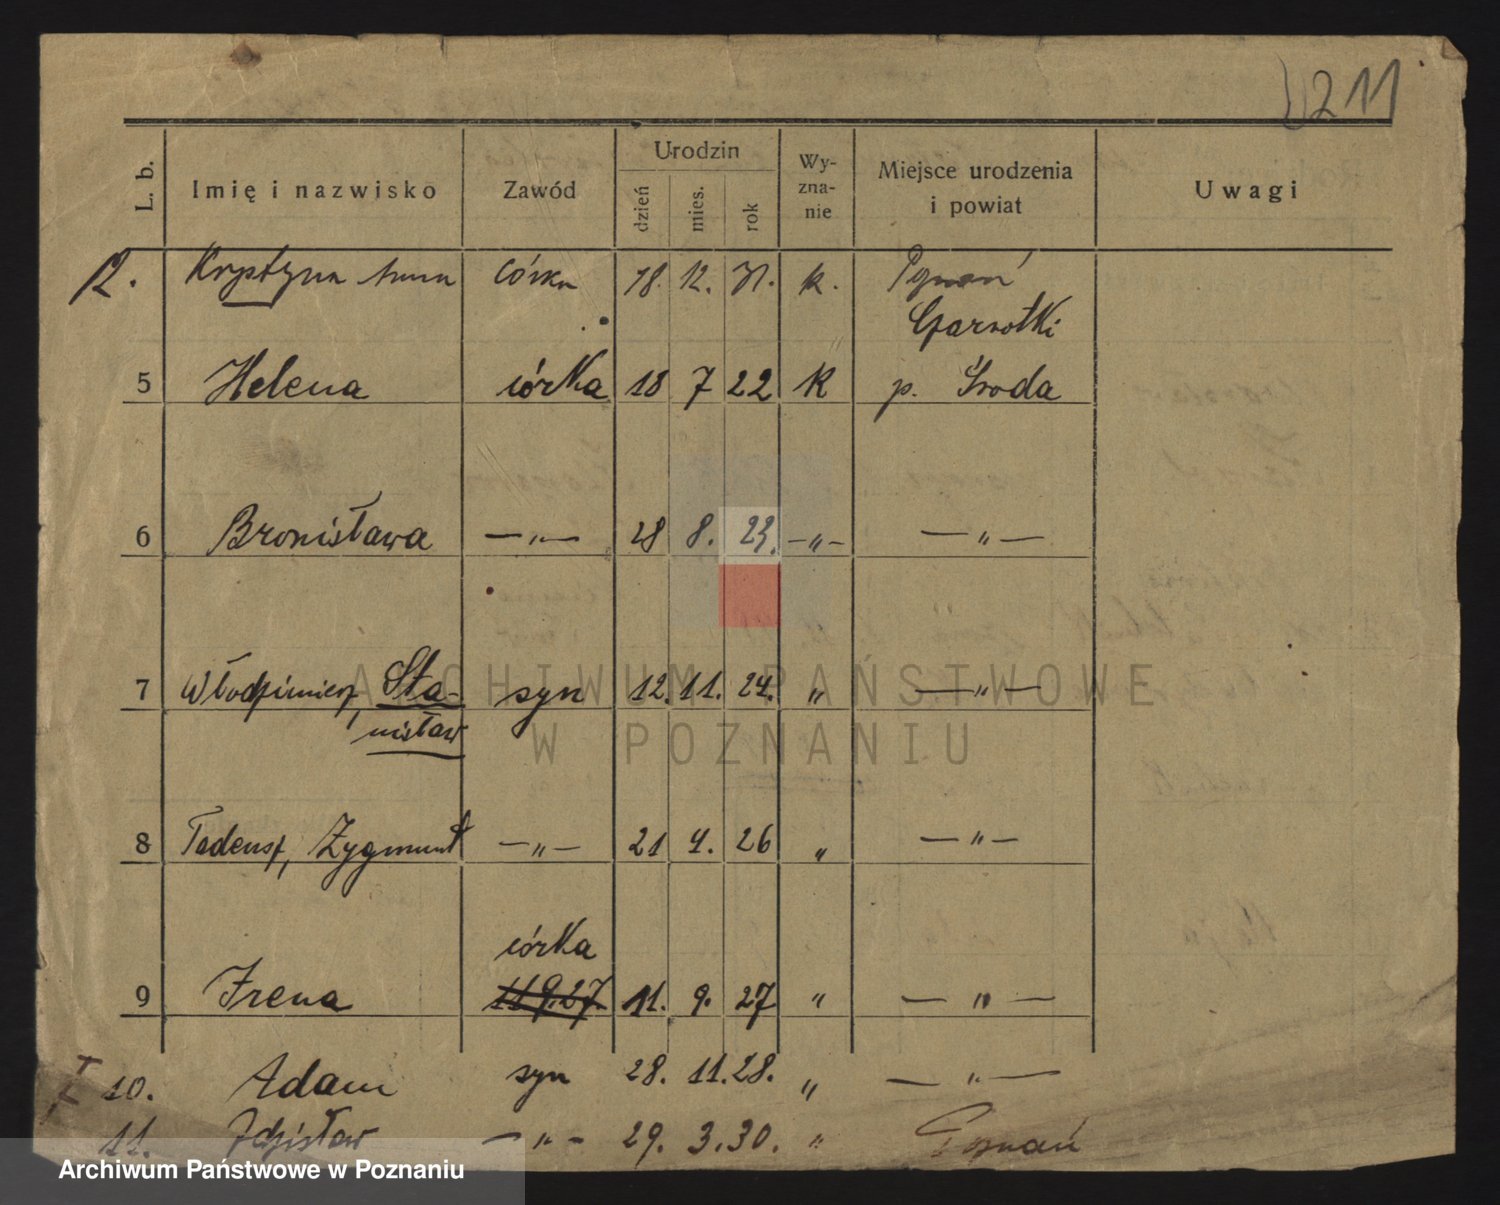 211
L. b. Imię i nazwisko Zawód Urodzin dzień mies. rok Wy-zna-nie Miejsce urodzenia i powiat Uwagi
12. Krystyna Anna córka 18. 12. 31. k. Poznań
Czarnotki
5 Helena córka 18 7 22 k p. Środa
6 Bronisława —„— 28 8. 23. —„— —„—
7 Włodzimierz, Sta- syn 12. 11. 24. „ —„—
nisław
8 Tadeusz, Zygmunt —„— 21 4. 26 „ —„—
córka
9 Irena 11 9.27 11. 9. 27 „ —„—
10. Adam syn 28. 11. 28. „ —„—
11. Zdzisław —„— 29. 3. 30. „ Poznań
ARCHIWUM PAŃSTWOWE
W POZNANIU
Archiwum Państwowe w Poznaniu